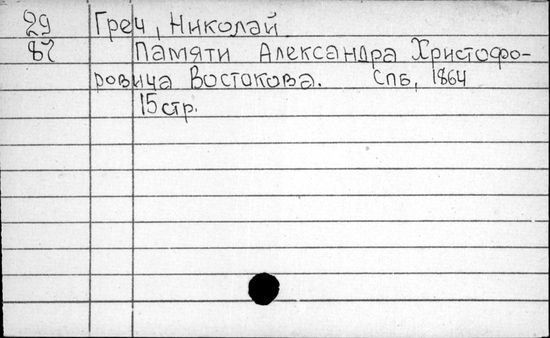 29 Греч, Николай
87 Памяти Александра Христофо-
ровича Востокова. Спб, 1864
15 стр.